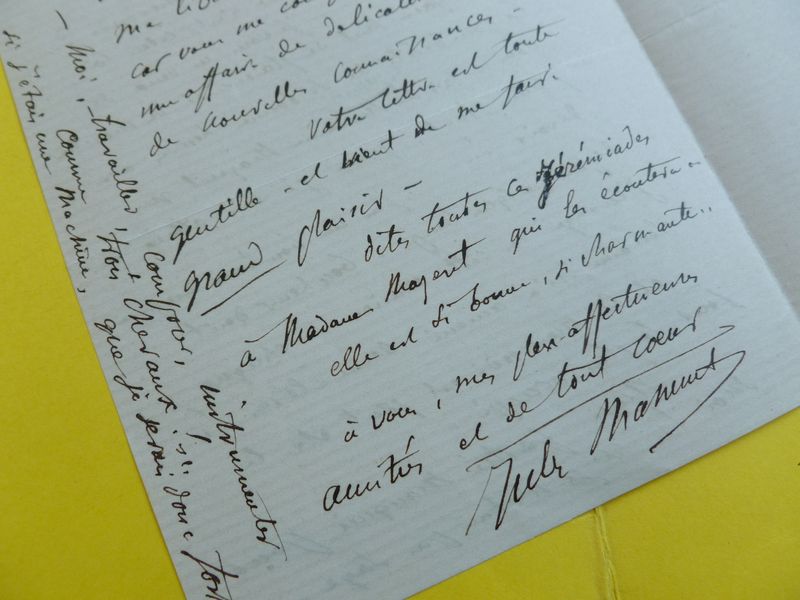 car vous me
une affaire de délicatesse
de nouvelles connaissances -
votre lettre est toute
gentille - et vient de me faire
grand plaisir -
dites toutes ces jérémiades
à Madame qui les écoutera -
elle est si bonne, si charmante..
à vous, mes plus affectueuses
amitiés et de tout cœur
Jules Massenet
- Moi, travailler, composer, instrumenter
comme trois chevaux ! si
si j'étais une machine, que je serais donc fort